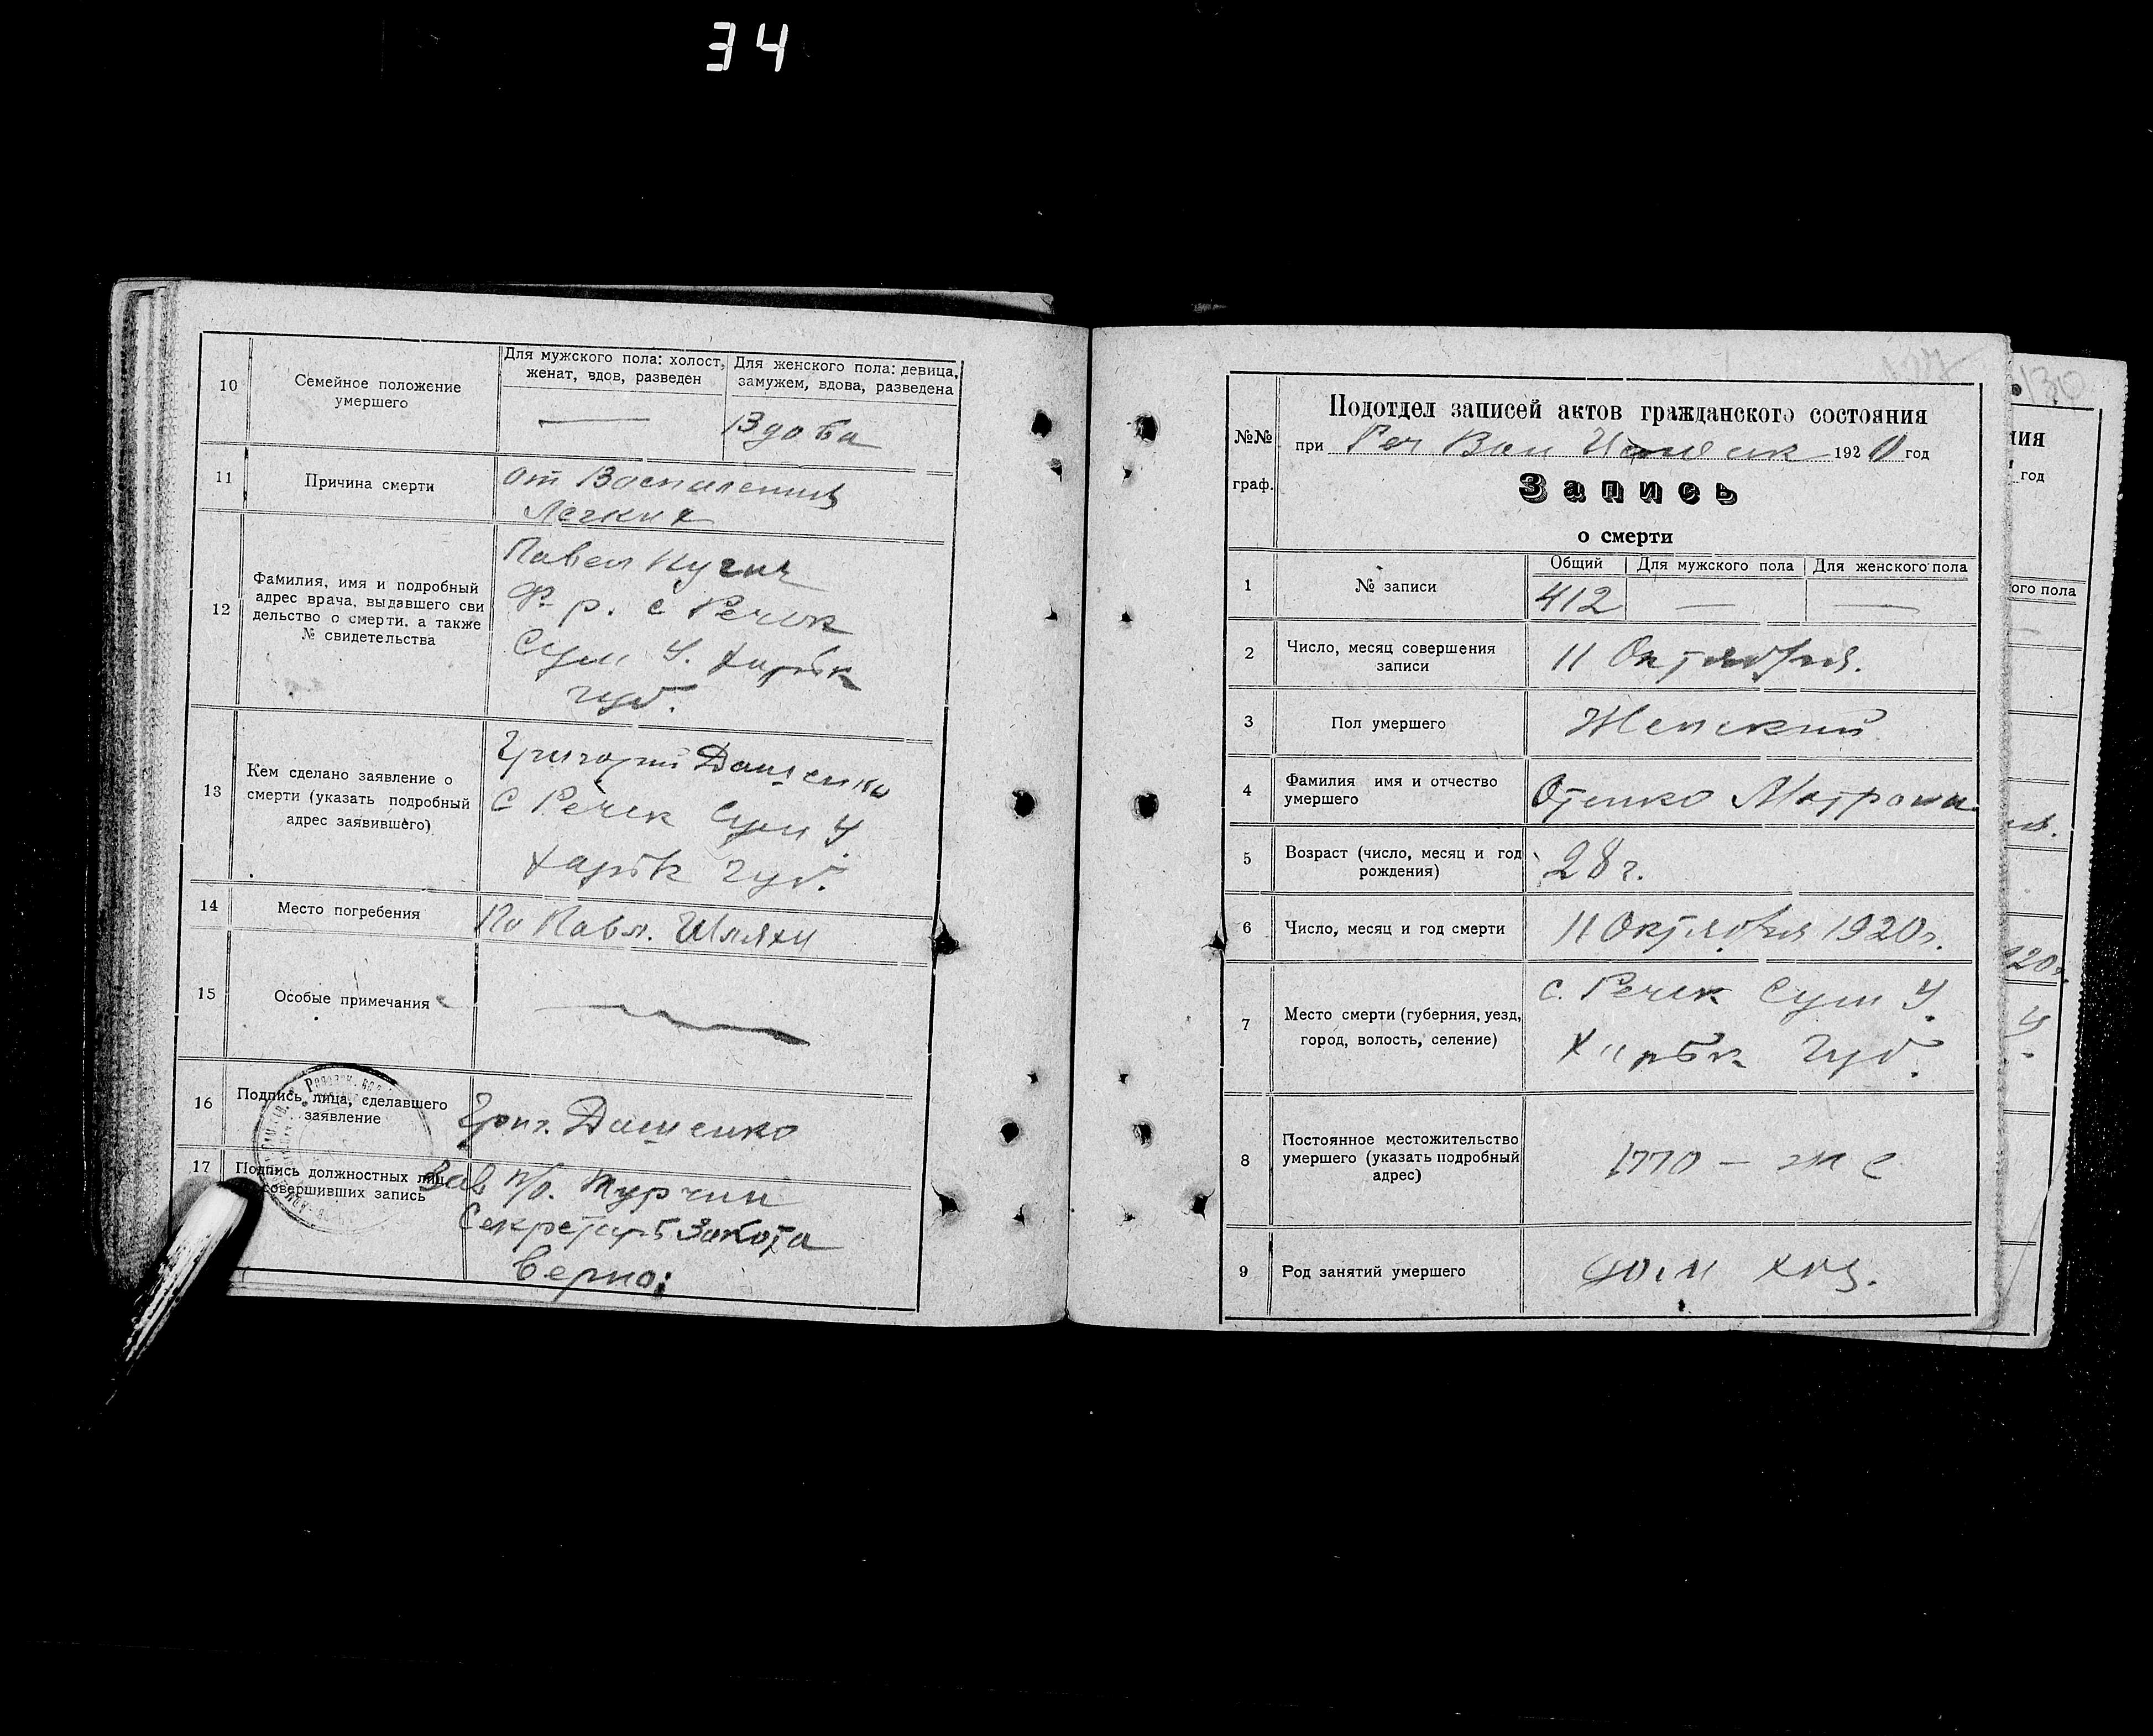 34
10
Семейное положение
умершего
Для мужского пола: холост,
женат, вдов, разведен
Для женского пола: девица,
замужем, вдова, разведена
—
Вдова
11
Причина смерти
от Воспаления
Легких
12
Фамилия, имя и подробный
адрес врача, выдавшего сви
детельство о смерти, а также
№ свидетельства
Павел
р. с Речек
Сум У. Харьк
губ.
13
Кем сделано заявление о
смерти (указать подробный
адрес заявившего)
Григорий Дашенко
С Речек Сум У.
Харьк губ.
14
Место погребения
По Павл. Шляху
15
Особые примечания
16
Подпись лица, сделавшего
заявление
Григ. Дашенко
17
Подпись должностных лиц,
совершивших запись
Зав п/о. Турчин
Секретарь
Верно:
127
№№
граф.
Подотдел записей актов гражданского состояния
при Реч Вол 1920 год
Запись
о смерти
1
№ записи
Общий
Для мужского пола
Для женского пола
412
—
—
2
Число, месяц совершения
записи
11 Октября.
3
Пол умершего
Женский
4
Фамилия имя и отчество
умершего
Отенко Матрона
5
Возраст (число, месяц и год
рождения)
28 г.
6
Число, месяц и год смерти
11 Октября 1920 г.
7
Место смерти (губерния, уезд,
город, волость, селение)
с. Речек Сум У.
Харьк губ.
8
Постоянное местожительство
умершего (указать подробный
адрес)
9
Род занятий умершего
дом хоз.
130
ния
год
ого пола